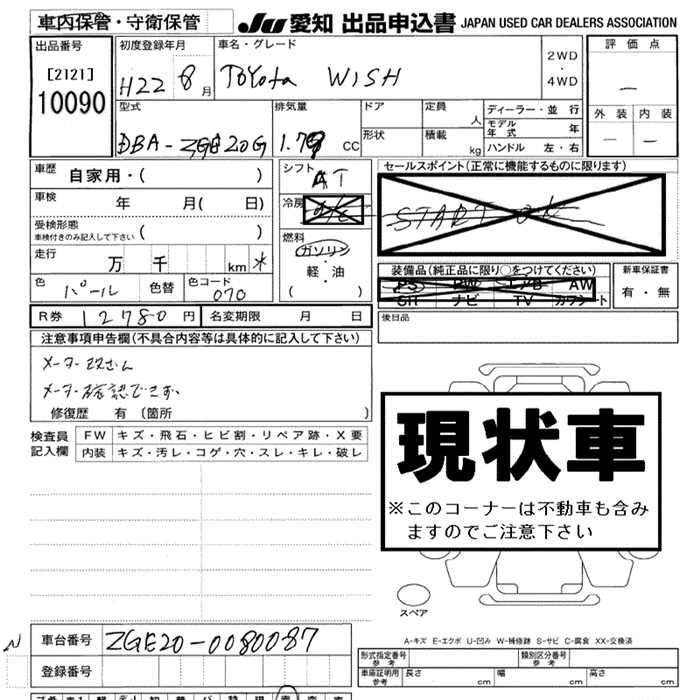 車内保管・守衛保管
JU 愛知 出品申込書 JAPAN USED CAR DEALERS ASSOCIATION
出品番号
[2121]
10090
初度登録年月
H22 8月
車名・グレード
TOYOTA WISH
2WD
・
4WD
評価点
—
外装 内装
— —
型式
DBA-ZGE20G
排気量
CC
ドア
形状
定員
人
積載
kg
ディーラー・並行
モデル年式 年
ハンドル 左・右
車歴 自家用・( )
車検 年 月( 日)
受検形態
車検付きのみ記入して下さい ( )
走行 万 千 km *
色 パール 色替 色コード 070
シフト AT
冷房 A/C
燃料
ガソリン
・
軽・油
( )
セールスポイント(正常に機能するものに限ります)
START OK
装備品(純正品に限り○をつけてください)
PS PW エアB AW
SR ナビ TV カワシート
新車保証書
有・無
R券 12780円 名変期限 月 日
後日品
注意事項申告欄(不具合内容等は具体的に記入して下さい)
メーター改ざん
メーター確認できず
修復歴 有 (箇所 )
検査員記入欄
FW キズ・飛石・ヒビ割・リペア跡・X要
内装 キズ・汚レ・コゲ・穴・スレ・キレ・破レ
現状車
※このコーナーは不動車も含み
ますのでご注意下さい
スペア
A-キズ E-エクボ U-凹み W-補修跡 S-サビ C-腐食 XX-交換済
N 車台番号 ZGE20-0080087
登録番号
形式指定番号 参考
類別区分番号 参考
車庫証明用 参考 長さ cm 幅 cm 高さ cm